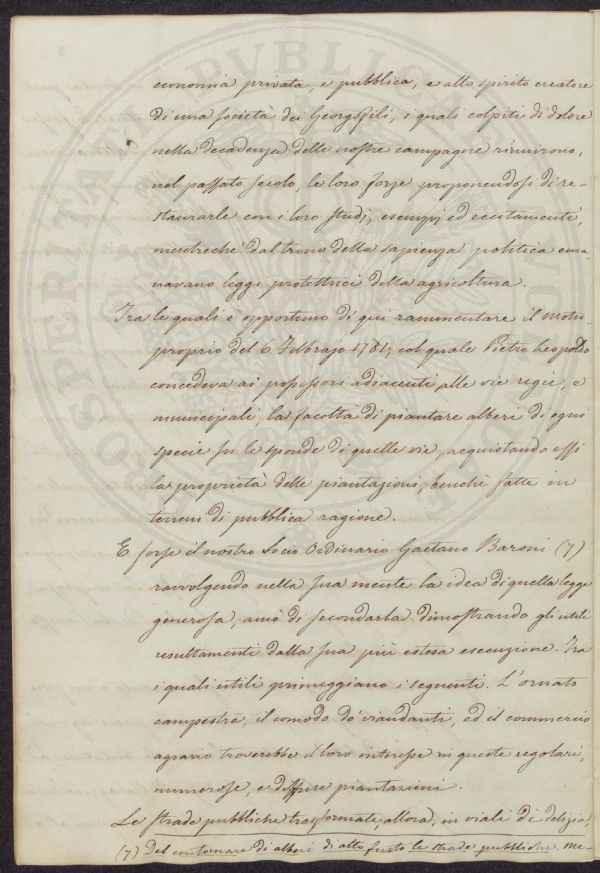 economia privata, e pubblica, e allo spirito creatore
di una società dei Georgofili, i quali colpiti di dolore
nella decadenza delle nostre campagne riunirono,
nel passato secolo, le loro forze proponendosi di re-
staurarle con i loro studj, esempj, ed eccitamenti,
mentreché dal trono della sapienza politica ema-
navano leggi protettrici della agricoltura.
Tra le quali è opportuno di qui rammentare il Motu-
proprio del 6 Febbrajo 1781, col quale Pietro Leopoldo
concedeva ai possessori adiacenti alle vie regie, e
municipali, la facoltà di piantare alberi di ogni
specie su le sponde di quelle vie, acquistando essi
la proprietà delle piantazioni, benchè fatte in
terreni di pubblica ragione.
E forse il nostro Socio Ordinario Gaetano Baroni (7)
ravvolgendo nella sua mente la idea di quella legge
generosa, amò di secondarla dimostrando gli utili
resultamenti dalla sua più estesa esecuzione. Tra
i quali utili primeggiano i seguenti. L'ornato
campestre, il comodo de' viandanti, ed il commercio
agrario troverebbe il loro interesse in queste regolari,
numerose, e diffuse piantazioni.
Le strade pubbliche trasformate, allora, in viali di delizia,
(7) Del contornare di alberi di alto fusto le strade pubbliche. Me-
PROSPERITATI PUBLICAE